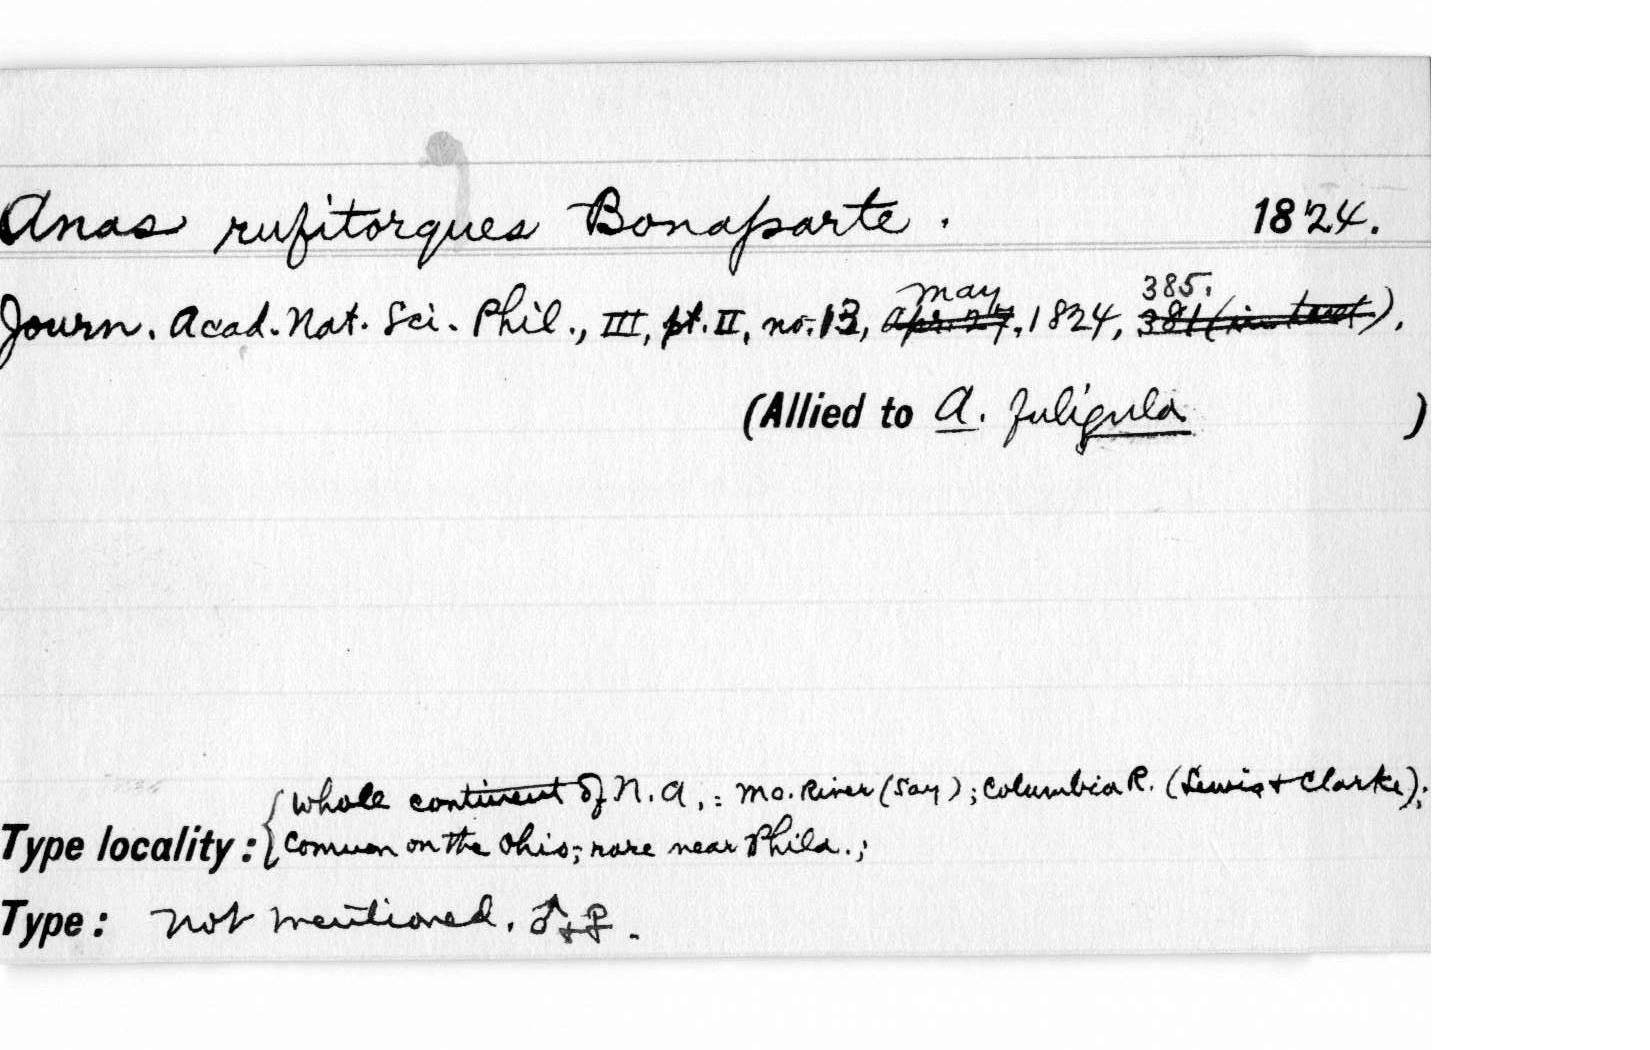 Anas rufitorques Bonaparte. 1824.
May 385.
Journ. Acad. Nat. Sci. Phil., III, pt. II, no. 13, Apr. 27, 1824, 381 (in text).
(Allied to A. fuligula )
Whole continent of N. A.: Mo. River (Say); Columbia R. (Lewis & Clarke);
Type locality: Common on the Ohio; rare near Phila.;
Type: Not mentioned. ♂ + ♀.